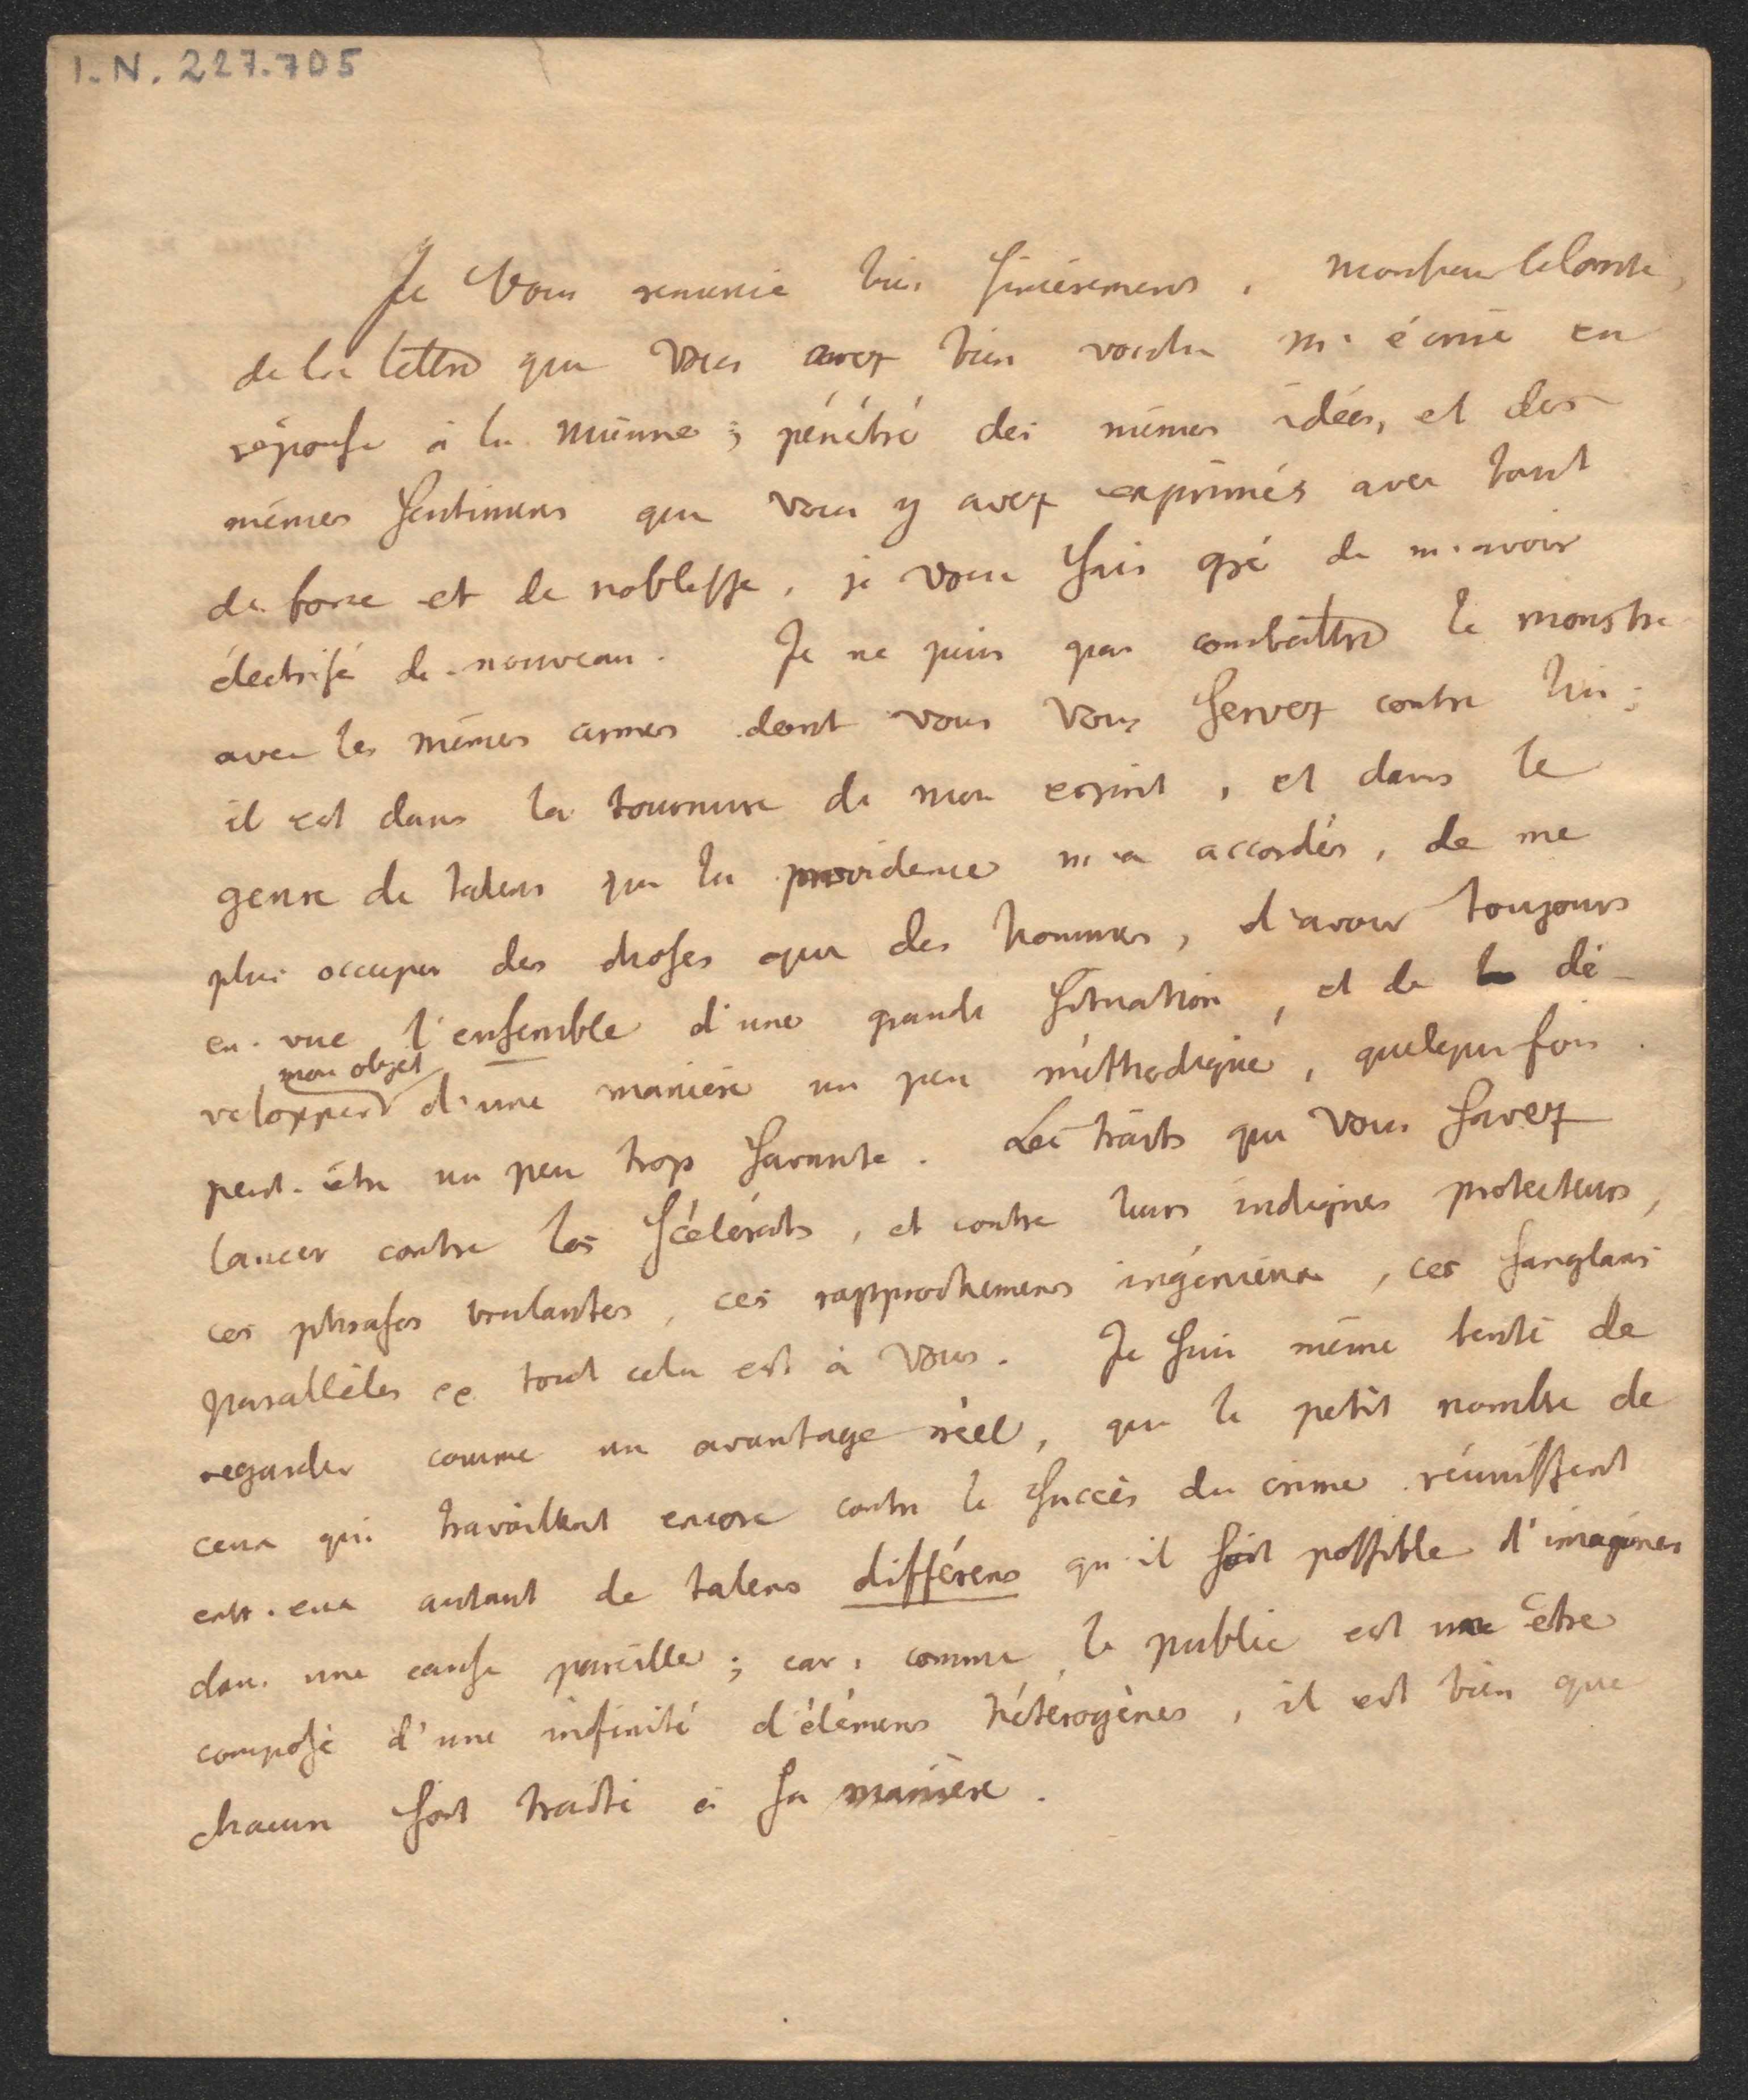 I.N. 227.705
Je Vous remercie bien sincèrement, Monsieur le Comte,
de la lettre que Vous avez bien voulu m'écrire en
réponse à la mienne ; pénétré des mêmes idées, et des
mêmes sentimens que vous y avez exprimés avec tant
de force et de noblesse, je vous sais gré de m'avoir
électrisé de nouveau. Je ne puis pas combattre le monstre
avec les mêmes armes dont vous Vous servez contre lui ;
il est dans la tournure de mon esprit, et dans le
genre de talens que la providence m'a accordés, de me
plus occuper des choses que des hommes, d'avoir toujours
en vue l'ensemble d'une grande situation, et de dé-
mon objet
velopper d'une manière un peu méthodique, quelquefois
peut-être un peu trop savante. Les traits que Vous savez
lancer contre les scélérats, et contre leurs indignes protecteurs,
ces phrases brulantes, ces rapprochemens ingénieux, ces sanglans
parallèles tout cela est à Vous. Je suis même tenté de
regarder comme un avantage réel, que le petit nombre de
ceux qui travaillent encore contre le succès du crime réunissent
entr'eux autant de talens différens qu'il soit possible d'imaginer
dans une cause pareille ; car, comme le public est un être
composé d'une infinité d'élémens hétérogènes, il est bien que
chacun soit traité à sa manière.